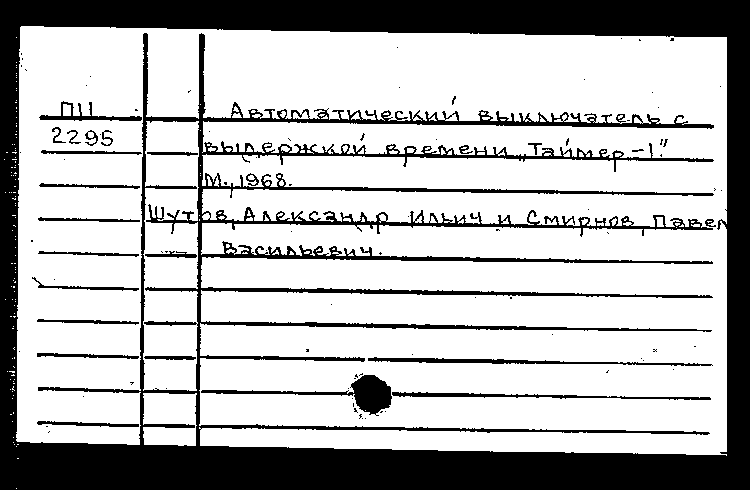 П11 Автоматический выключатель с
2295 выдержкой времени „Таймер-1“.
М., 1968.
Шутов, Александр Ильич и Смирнов, Павел
Васильевич.